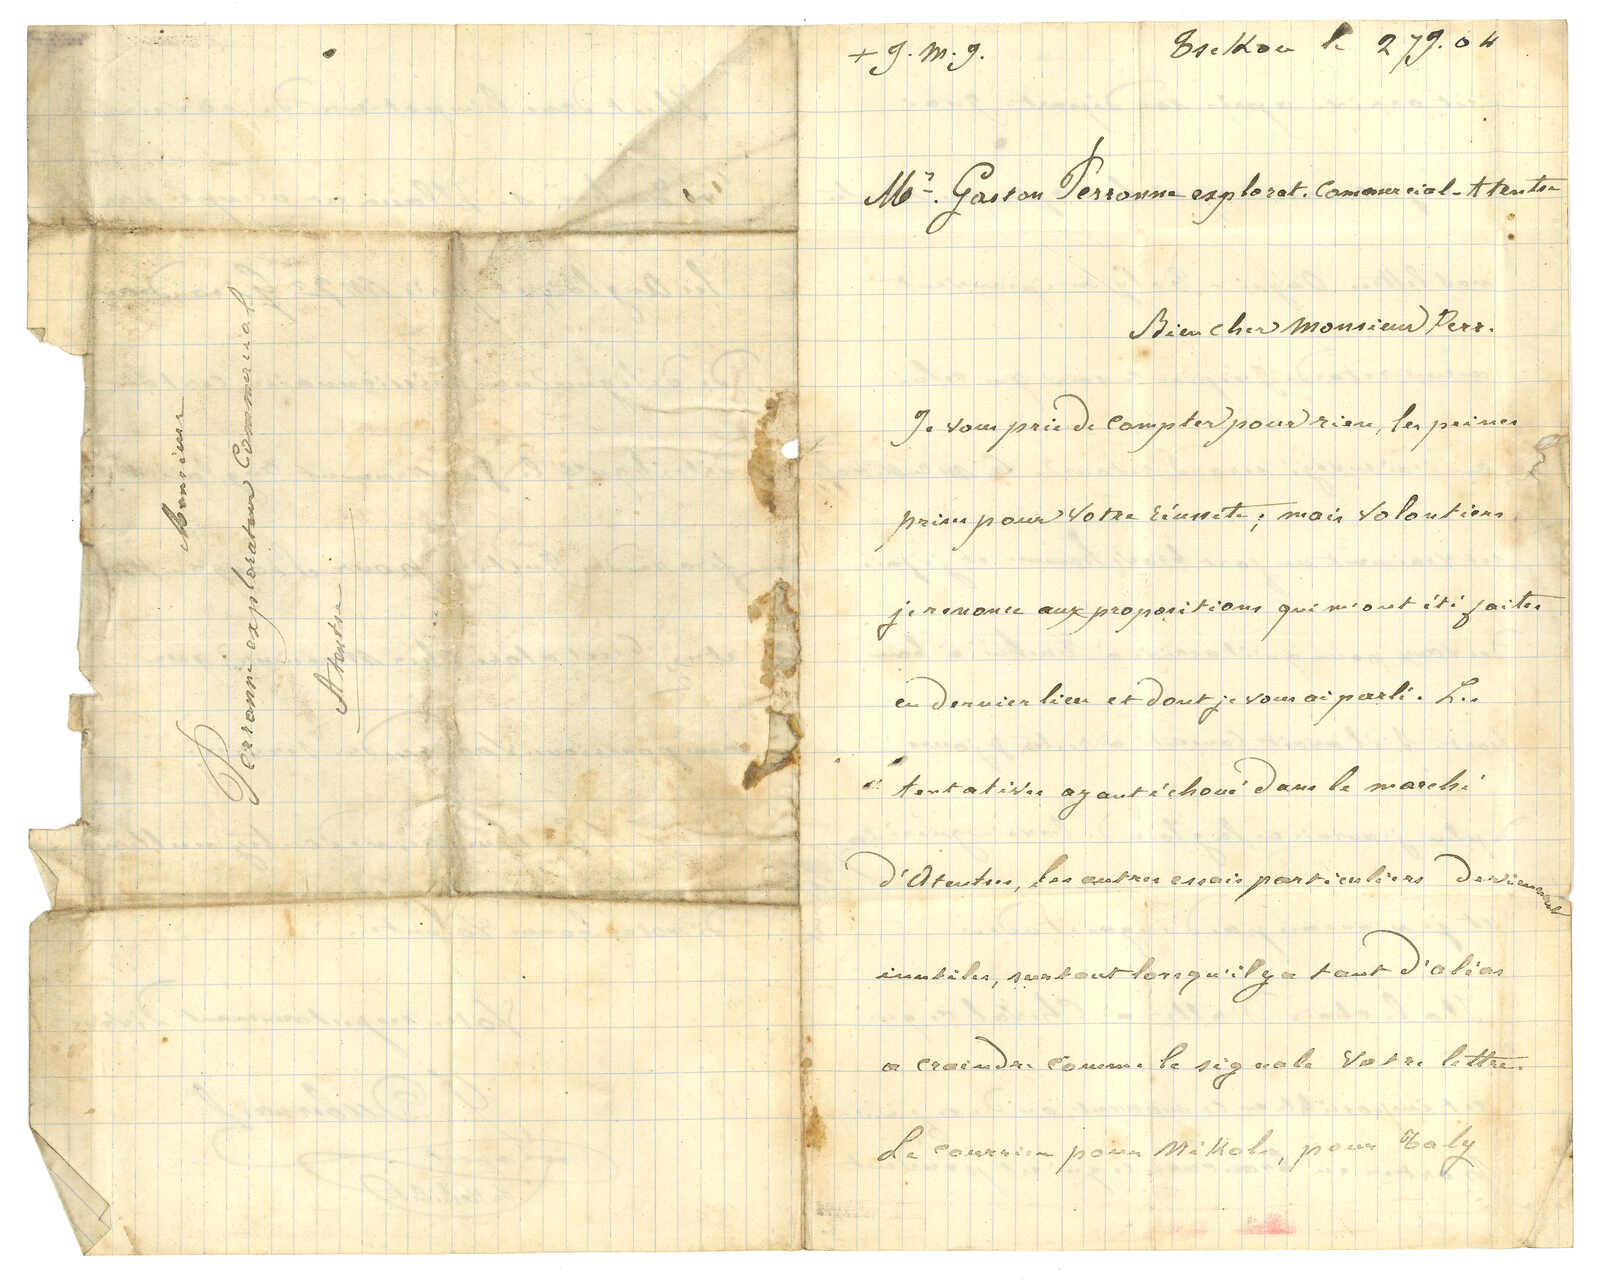 Monsieur
Perronne explorateur Commercial
Atentsu
+ J. M. J.
Tsekou le 27 9. 04
Mr. Gaston Perronne explorat. Commercial - Atentse
Bien cher Monsieur Perr.
Je vous prie de compter pour rien, les peines
prises pour votre réussite; mais volontiers
je renonce aux propositions qui m'ont été faites
en dernier lieu et dont je vous ai parlé. Les
tentatives ayant échoué dans le marché
d'Atentse, les autres essais particuliers deviennent
inutiles, surtout lorsqu'il y a tant d'aléas
a craindre comme le signale votre lettre.
Le courrier pour pour Taly